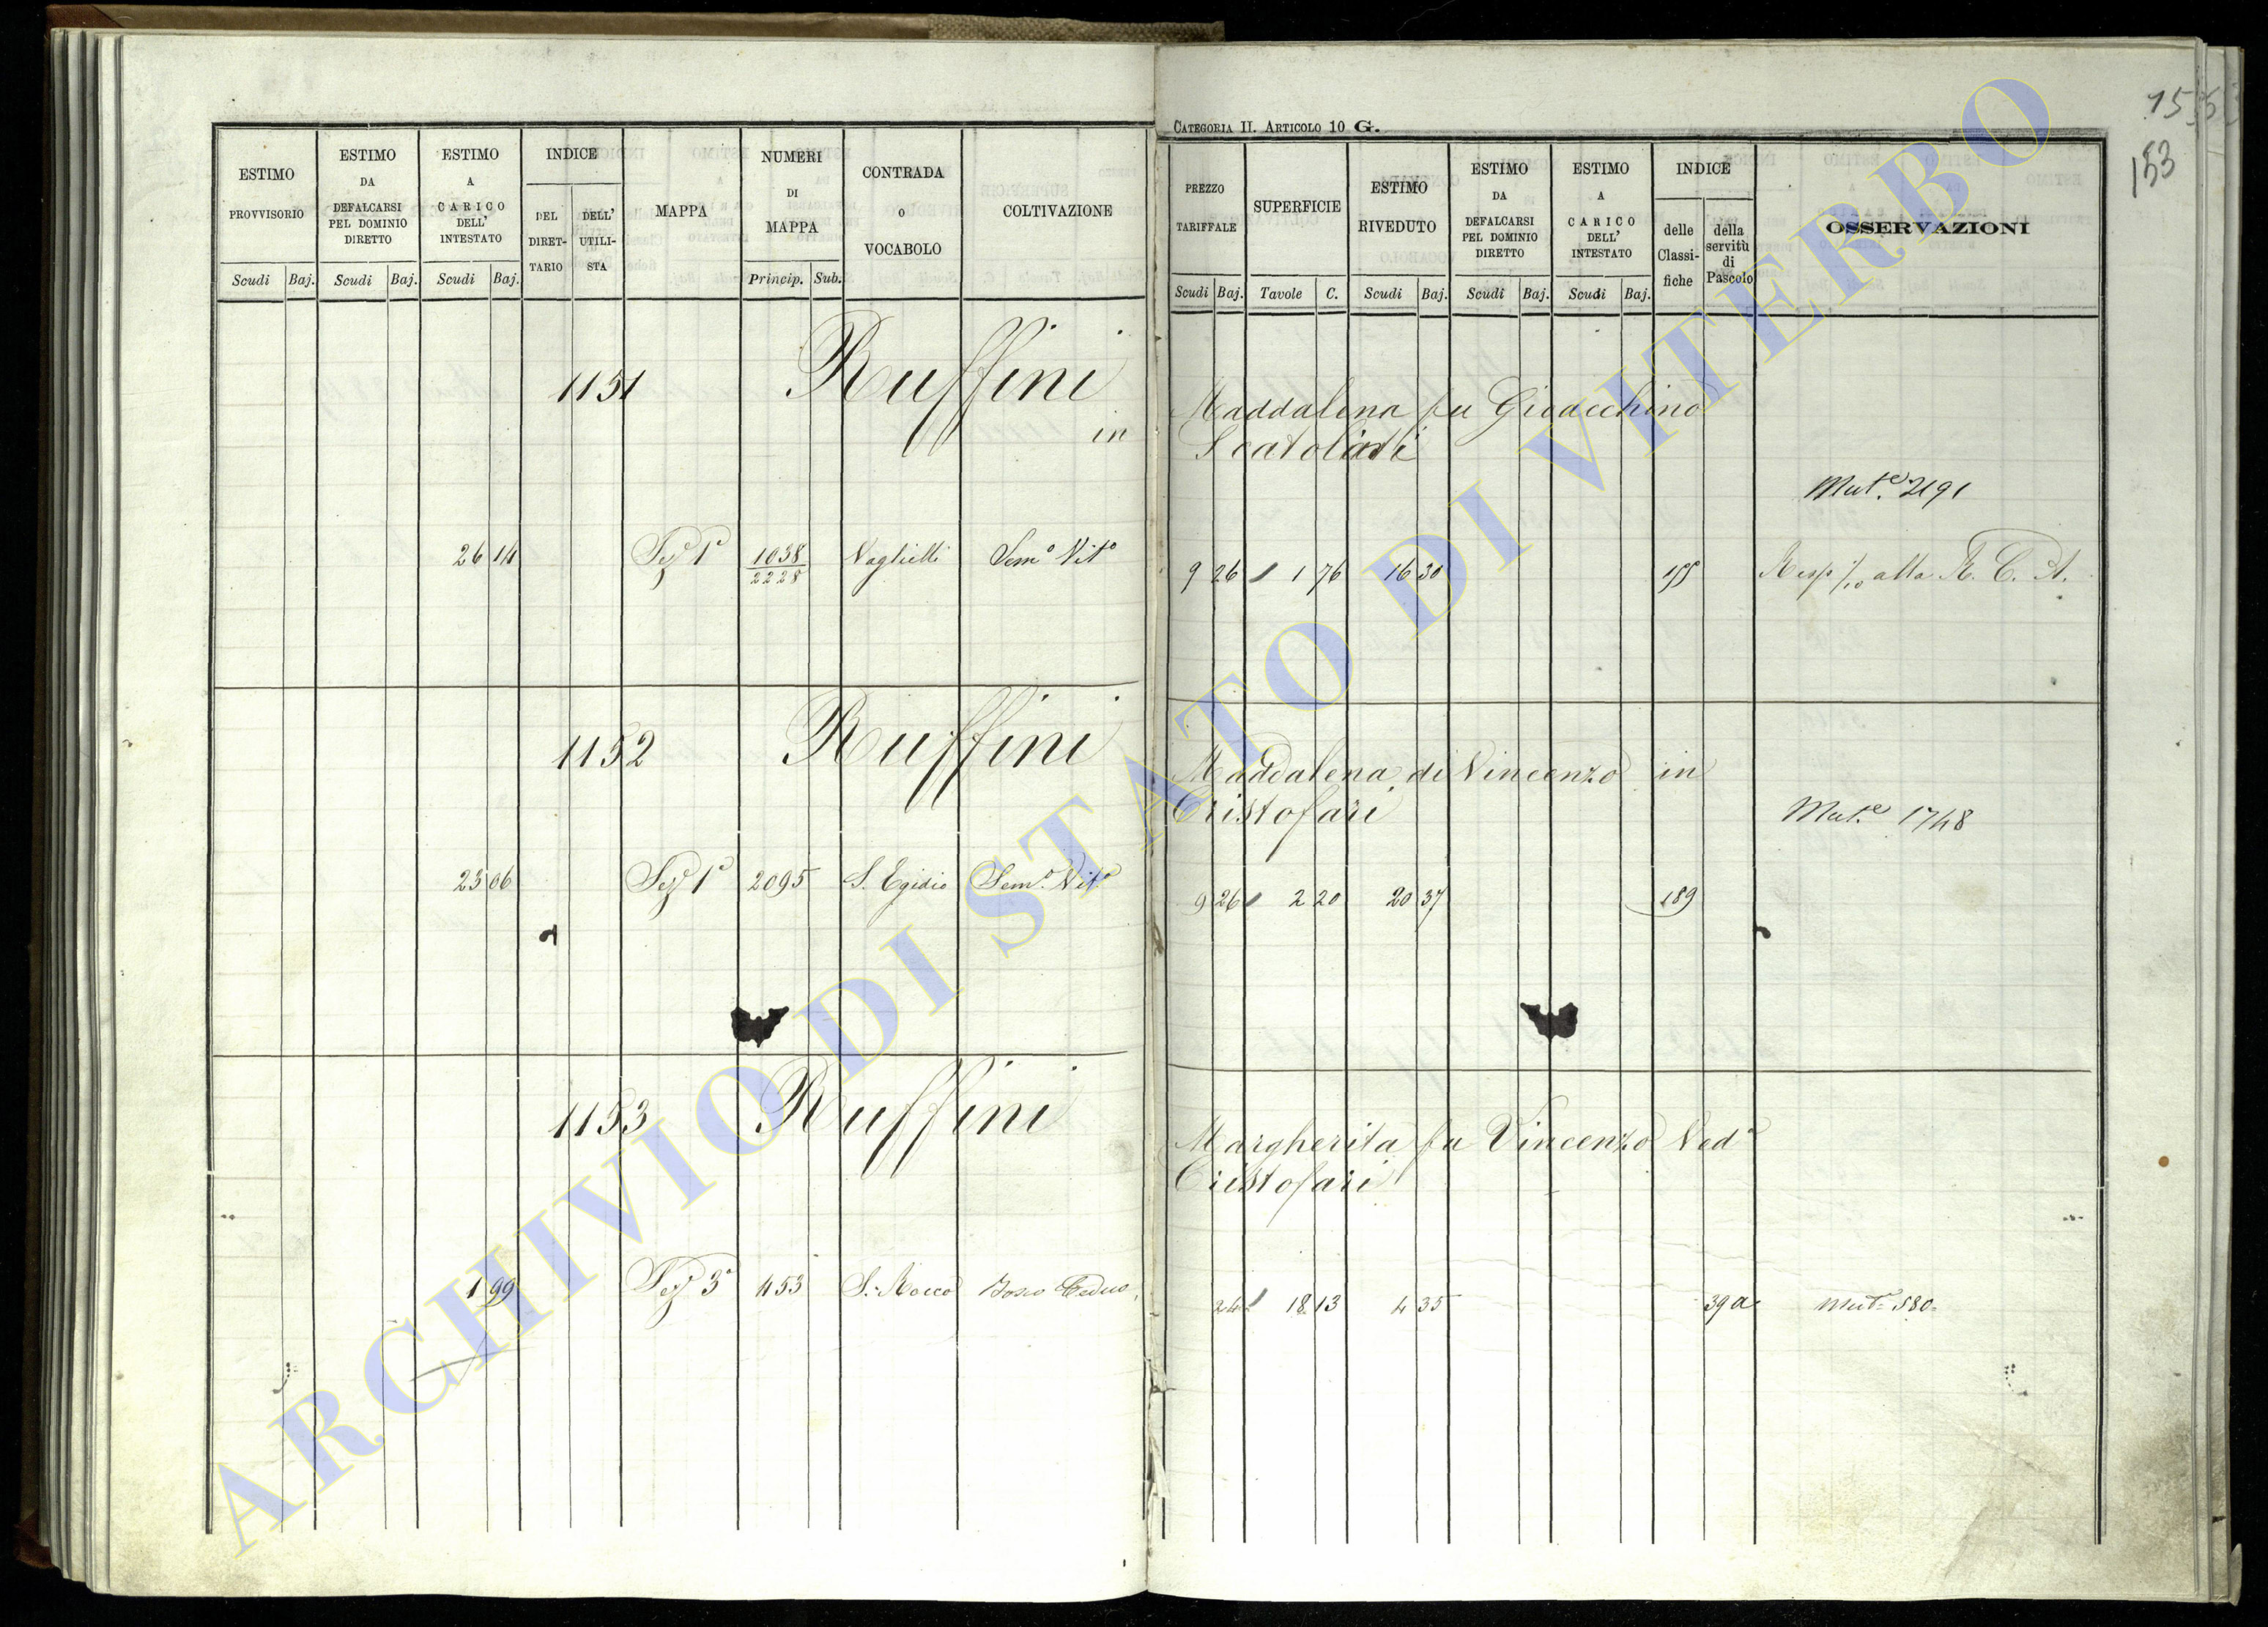 CATEGORIA II. ARTICOLO 10 G.
153
ESTIMO PROVVISORIO Scudi Baj.
ESTIMO DA DEFALCARSI PEL DOMINIO DIRETTO Scudi Baj.
ESTIMO A CARICO DELL' INTESTATO Scudi Baj.
INDICE DEL DIRETTARIO DELL' UTILISTA
MAPPA
NUMERI DI MAPPA Princip. Sub.
CONTRADA O VOCABOLO
COLTIVAZIONE
PREZZO TARIFFALE Scudi Baj.
SUPERFICIE Tavole C.
ESTIMO RIVEDUTO Scudi Baj.
ESTIMO DA DEFALCARSI PEL DOMINIO DIRETTO Scudi Baj.
ESTIMO A CARICO DELL' INTESTATO Scudi Baj.
INDICE delle Classifiche della servitù di Pascolo
OSSERVAZIONI
1151 Ruffini Maddalena fu Gioacchino
in Scatolari
Mut.e 2191
26 14 Sez.e 1a 1038/2228 Soliv.o Vit.o 9 26 1 76 16 30 Resp 1/10 alla R. C. A.
1152 Ruffini Maddalena di Vincenzo in
Cristofari
Mut.e 1748
23 06 Sez.e 1a 2095 S. Egidio Sem.o Vit.o 9 26 2 20 20 37 189
1153 Ruffini Margherita fu Vincenzo Ved.a
Cristofari
1 99 Sez.e 3a 453 S. Rocco Bosco Ceduo 24 18 13 4 35 39a Mut.e 580
ARCHIVIO DI STATO DI VITERBO